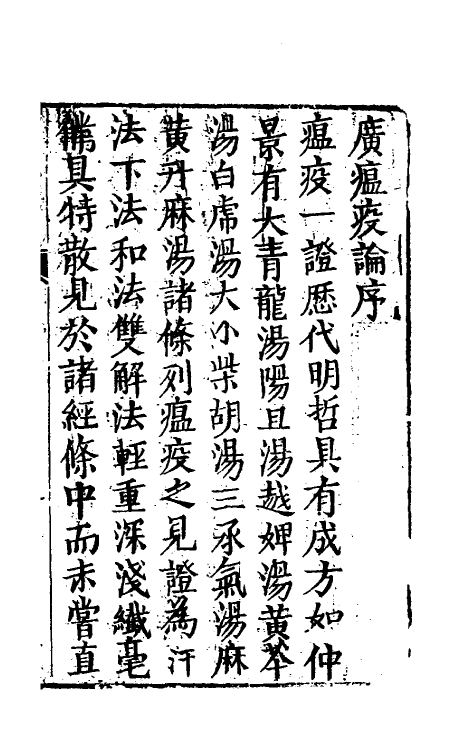 廣瘟疫論序
瘟疫一證歷代明哲具有成方如仲
景有大青龍湯陽旦湯越婢湯黃芩
湯白虎湯大小柴胡湯三承氣湯麻
黃升麻湯諸條列瘟疫之見證為汗
法下法和法雙解法輕重深淺纖毫
備具特散見於諸經條中而未嘗直